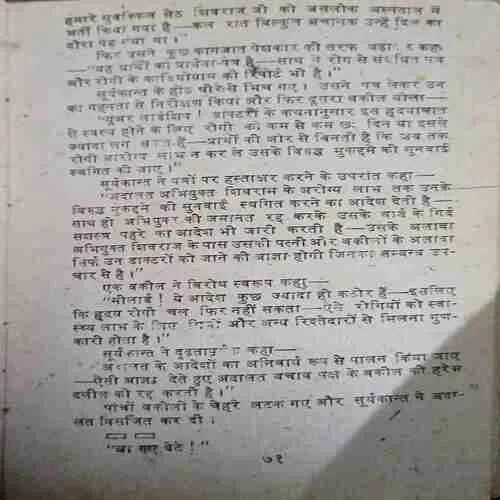 हमारे मुवक्किल सेठ शिवराज जी को जसलोक अस्पताल में
भर्ती किया गया है—कल रात बिल्कुल अचानक उन्हें दिल का
दौरा पड़ गया था।"
फिर उसने कुछ कागजात पेशकार की तरफ बढ़ाकर कहा
—"यह प्रार्थी का प्रार्थना-पत्र है—साथ में रोग से संबंधित पत्र
और रोगी के कार्डियोग्राम की रिपोर्ट भी है।"
सूर्यकान्त के होंठ धीरे से भिंच गए। उसने पत्र लेकर उन
का गहनता से निरीक्षण किया और फिर दूसरा वकील बोला—
डाक्टरों के कथनानुसार इस हृदयाघात
से स्वस्थ होने के लिए रोगी को कम से कम छः दिन या इससे
ज्यादा लग सकते हैं—प्रार्थी की ओर से विनती है कि जब तक
रोगी आरोग्य लाभ न कर ले उसके विरुद्ध मुकद्दमे की सुनवाई
स्थगित की जाए।"
सूर्यकान्त ने पत्रों पर हस्ताक्षर करने के उपरांत कहा—
"अदालत अभियुक्त शिवराज के आरोग्य लाभ तक उनके
विरुद्ध मुकद्दमे की सुनवाई स्थगित करने का आदेश देती है—
साथ ही अभियुक्त की जमानत रद्द करके उसके वार्ड के गिर्द
सशस्त्र पहरे का आदेश भी जारी करती है—उसके अलावा
अभियुक्त शिवराज के पास उसकी पत्नी और वकीलों के अलावा
सिर्फ उन डाक्टरों को जाने की आज्ञा होगी जिनका सम्बन्ध उप-
चार से है।"
एक वकील ने विरोध स्वरूप कहा—
"मीलार्ड! ये आदेश कुछ ज्यादा ही कठोर हैं—इसलिए
कि हृदय रोगी चल फिर नहीं सकता—ऐसे रोगियों को स्वा-
स्थ्य लाभ के लिए मित्रों और अन्य रिश्तेदारों से मिलना गुण-
कारी होता है।"
सूर्यकान्त ने दृढ़तापूर्वक कहा—
अदालत के आदेशों का अनिवार्य रूप से पालन किया जाए
—ऐसी आज्ञा देते हुए अदालत बचाव पक्ष के वकील की हरेक
दलील को रद्द करती है।"
पांचों वकीलों के चेहरे लटक गए और सूर्यकान्त ने अदा-
लत विसर्जित कर दी।
"आ गए बेटे!"
७१